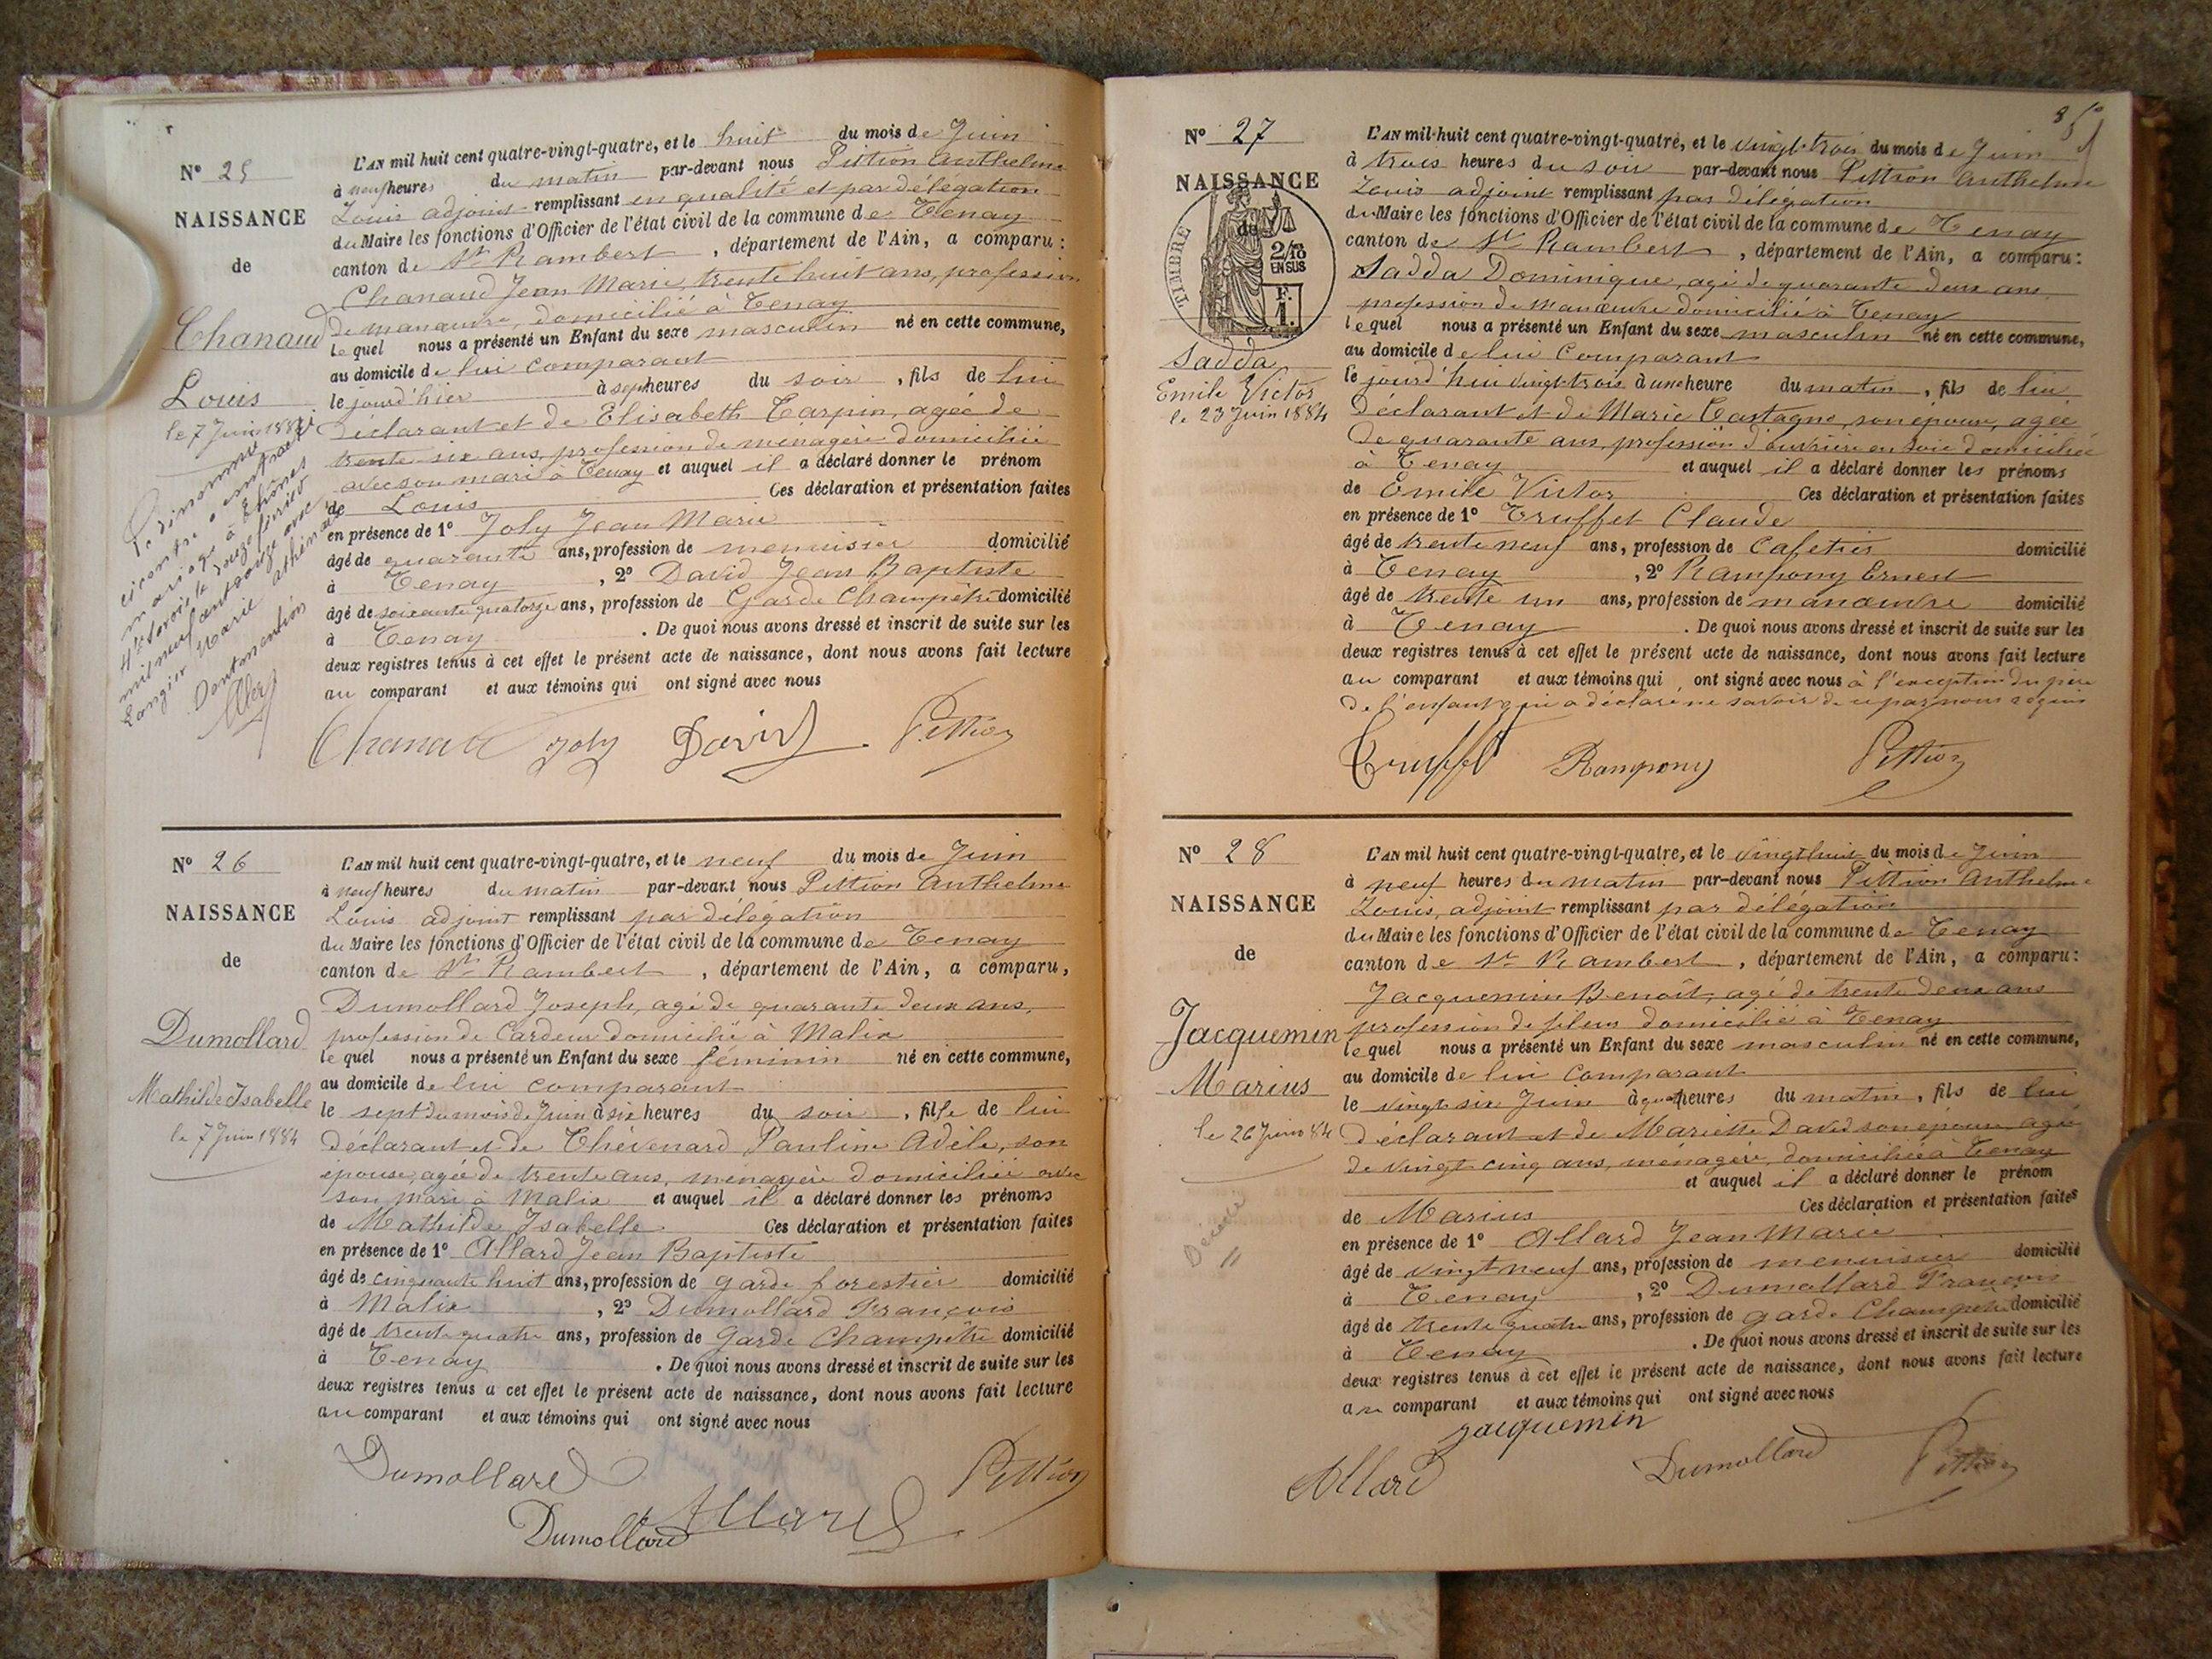 N° 25
NAISSANCE
de
Chanaud
Louis
le 7 Juin 1884
mariage à
mil neuf cent onze avec
Marie
Dont mention
L'AN mil huit cent quatre-vingt-quatre, et le huit du mois de Juin
à neuf heures du matin par-devant nous Pittion Anthelme
Louis adjoint remplissant en qualité et par délégation
du Maire les fonctions d'Officier de l'état civil de la commune de Tenay
canton de St Rambert, département de l'Ain, a comparu:
Chanaud Jean Marie, trente huit ans, profession
de manœuvre, domicilié à Tenay
lequel nous a présenté un Enfant du sexe masculin né en cette commune,
au domicile de lui comparant
le jourd'hier à sept heures du soir, fils de lui
déclarant et de Elisabeth Tarpin, agée de
trente-six ans, profession de ménagère domiciliée
avec son mari à Tenay et auquel il a déclaré donner le prénom
de Louis Ces déclaration et présentation faites
en présence de 1° Joly Jean Marie
âgé de quarante ans, profession de menuisier domicilié
à Tenay, 2° David Jean Baptiste
âgé de soixante quatorze ans, profession de Garde Champêtre domicilié
à Tenay. De quoi nous avons dressé et inscrit de suite sur les
deux registres tenus à cet effet le présent acte de naissance, dont nous avons fait lecture
au comparant et aux témoins qui ont signé avec nous
Chanaud Joly David Pittion
N° 26
NAISSANCE
de
Dumollard
Mathilde Isabelle
le 7 Juin 1884
L'AN mil huit cent quatre-vingt-quatre, et le neuf du mois de Juin
à neuf heures du matin par-devant nous Pittion Anthelme
Louis adjoint remplissant par délégation
du Maire les fonctions d'Officier de l'état civil de la commune de Tenay
canton de St Rambert, département de l'Ain, a comparu,
Dumollard Joseph, agé de quarante deux ans,
profession de Cardeur domicilié à Malix
lequel nous a présenté un Enfant du sexe féminin né en cette commune,
au domicile de lui comparant
le sept du mois de Juin à six heures du soir, fille de lui
déclarant et de Thévenard Pauline Adèle, son
épouse, agée de trente ans, ménagère domiciliée avec
son mari à Malix et auquel il a déclaré donner les prénoms
de Mathilde Isabelle Ces déclaration et présentation faites
en présence de 1° Allard Jean Baptiste
âgé de cinquante huit ans, profession de garde forestier domicilié
à Malix, 2° Dumollard François
âgé de trente quatre ans, profession de Garde Champêtre domicilié
à Tenay. De quoi nous avons dressé et inscrit de suite sur les
deux registres tenus à cet effet le présent acte de naissance, dont nous avons fait lecture
au comparant et aux témoins qui ont signé avec nous
Dumollard Pittion
Dumollard Allard
N° 27
NAISSANCE
de
TIMBRE
2/10 EN SUS
F. 1.
Sadda
Emile Victor
le 23 Juin 1884
L'AN mil huit cent quatre-vingt-quatre, et le vingt-trois du mois de Juin
à trois heures du soir par-devant nous Pittion Anthelme
Louis adjoint remplissant par délégation
du Maire les fonctions d'Officier de l'état civil de la commune de Tenay
canton de St Rambert, département de l'Ain, a comparu:
Sadda Dominique, agé de quarante deux ans
profession de manœuvre domicilié à Tenay
lequel nous a présenté un Enfant du sexe masculin né en cette commune,
au domicile de lui comparant
le jourd'hui vingt-trois à une heure du matin, fils de lui
déclarant et de Marie Castagno, son épouse, agée
de quarante ans, profession d'ouvrière en soie domiciliée
à Tenay et auquel il a déclaré donner les prénoms
de Emile Victor Ces déclaration et présentation faites
en présence de 1° Truffet Claude
âgé de trente neuf ans, profession de Cafetier domicilié
à Tenay, 2° Rampony Ernest
âgé de trente un ans, profession de manœuvre domicilié
à Tenay. De quoi nous avons dressé et inscrit de suite sur les
deux registres tenus à cet effet le présent acte de naissance, dont nous avons fait lecture
au comparant et aux témoins qui ont signé avec nous à l'exception du père
de l'enfant qui a déclaré ne savoir de ce par nous requis
Truffet Rampony Pittion
N° 28
NAISSANCE
de
Jacquemin
Marius
le 26 Juin 84
Décédé
L'AN mil huit cent quatre-vingt-quatre, et le vingt huit du mois de Juin
à neuf heures du matin par-devant nous Pittion Anthelme
Louis, adjoint remplissant par délégation
du Maire les fonctions d'Officier de l'état civil de la commune de Tenay
canton de St Rambert, département de l'Ain, a comparu:
Jacquemin Benoît, agé de trente deux ans
profession de fileur domicilié à Tenay
lequel nous a présenté un Enfant du sexe masculin né en cette commune,
au domicile de lui comparant
le vingt six Juin à quatre heures du matin, fils de lui
déclarant et de Mariette David son épouse, agée
de vingt cinq ans, ménagère, domiciliée à Tenay
et auquel il a déclaré donner le prénom
de Marius Ces déclaration et présentation faites
en présence de 1° Allard Jean Marie
âgé de vingt neuf ans, profession de menuisier domicilié
à Tenay, 2° Dumollard François
âgé de trente quatre ans, profession de garde Champêtre domicilié
à Tenay. De quoi nous avons dressé et inscrit de suite sur les
deux registres tenus à cet effet le présent acte de naissance, dont nous avons fait lecture
au comparant et aux témoins qui ont signé avec nous
Jacquemin
Allard Dumollard Pittion